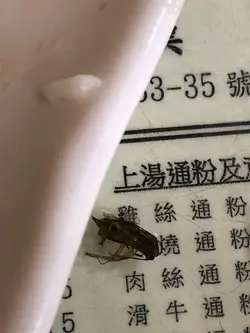 33-35 號
上湯通粉及
雞絲通粉
燒通粉
肉絲通粉
滑牛通粉